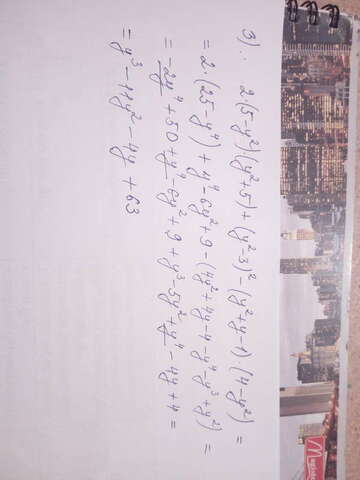 3). 2·(5-y²)(y²+5)+(y²-3)²-(y²+y-1)(4-y²)=
=2·(25-y⁴)+y⁴-6y²+9-(4y²+4y-4-y⁴-y³+y²)=
=-2y⁴+50+y⁴-6y²+9+y³-5y²+y⁴-4y+4=
=y³-11y²-4y+63